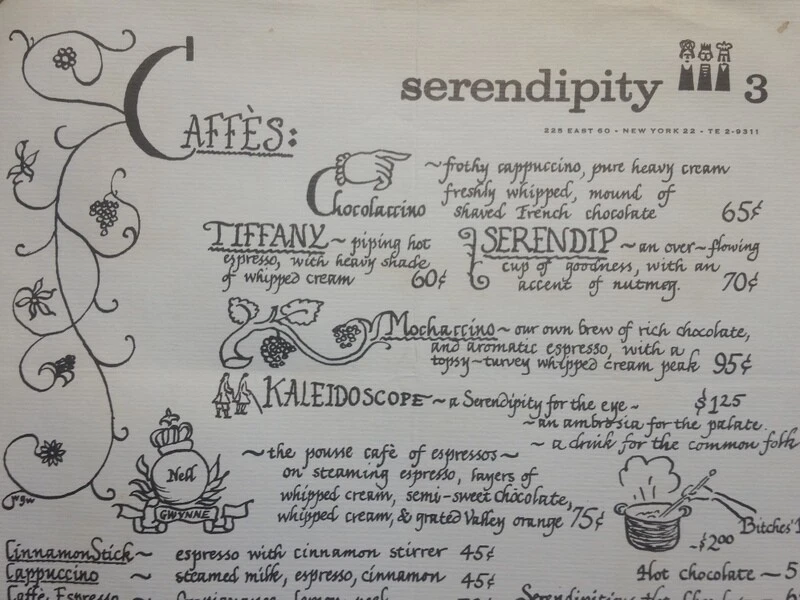 serendipity 3
225 EAST 60 • NEW YORK 22 • TE 2-9311
CAFFÈS:
Chocolaccino ~frothy cappuccino, pure heavy cream
freshly whipped, mound of
shaved French chocolate 65¢
TIFFANY ~ piping hot
espresso, with heavy shade
of whipped cream 60¢
SERENDIP ~ an over-flowing
cup of goodness, with an
accent of nutmeg. 70¢
Mochaccino ~ our own brew of rich chocolate,
and aromatic espresso, with a
topsy-turvey whipped cream peak 95¢
KALEIDOSCOPE ~ a Serendipity for the eye ~ $1.25
~ an ambrosia for the palate.
~ a drink for the common folk
Nell
GWYNNE
~ the pousse cafè of espressos ~
on steaming espresso, layers of
whipped cream, semi-sweet chocolate,
whipped cream, & grated Valley orange 75¢
Bitches'
~$2.00
jrgw
Cinnamon Stick ~ espresso with cinnamon stirrer 45¢
Hot chocolate ~ 5
Cappuccino ~ steamed milk, espresso, cinnamon 45¢
Caffè Espresso